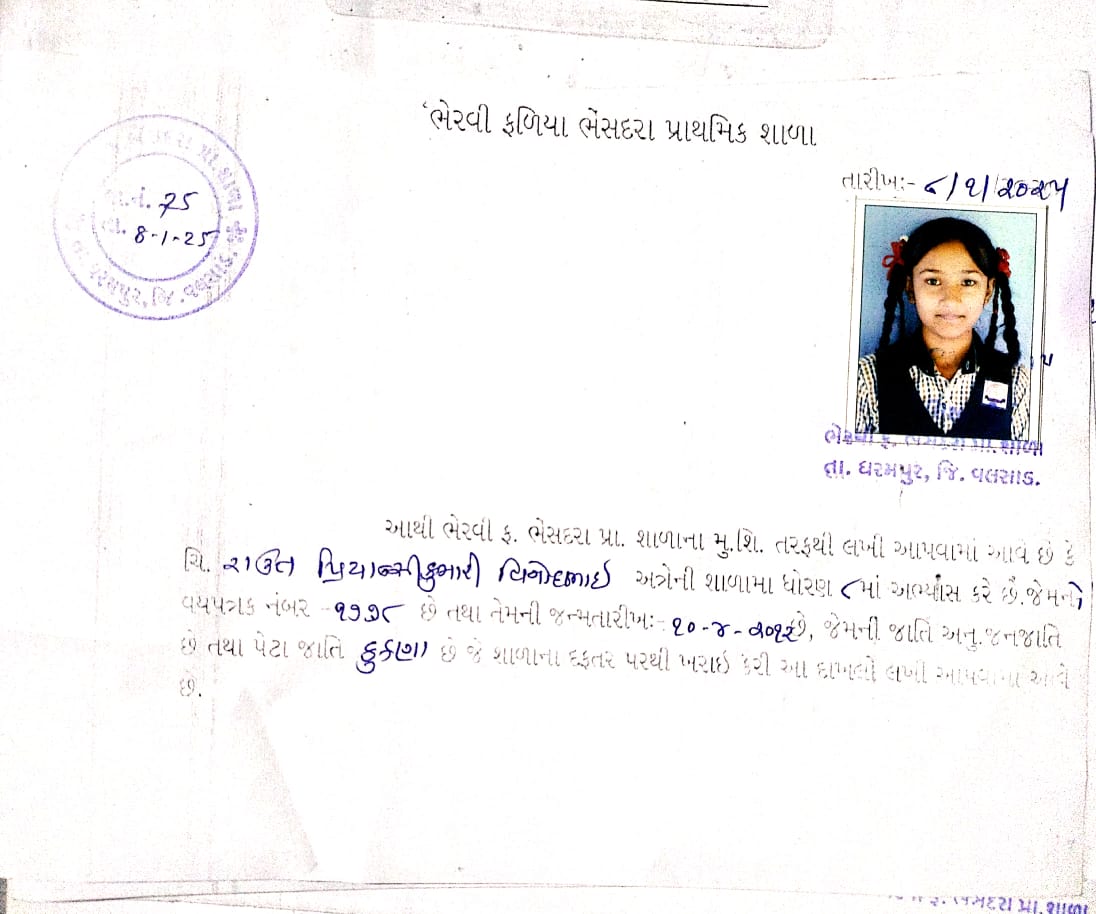 'ભેરવી ફળિયા ભેંસદરા પ્રાથમિક શાળા
તારીખઃ- ૮/૧/૨૦૨૫
પ્રા.શાળા
જા.નં. 75
તા. 8-1-25
ધરમપુર, જિ.વલસાડ.
ભેરવી ફ. ભેંસદરા પ્રા.શાળા
તા. ધરમપુર, જિ. વલસાડ.
આથી ભેરવી ફ. ભેસદરા પ્રા. શાળાના મુ.શિ. તરફથી લખી આપવામાં આવે છે કે
ચિ. રાઉત પ્રિયાન્સીકુમારી વિનોદભાઇ અત્રેની શાળામા ધોરણ ૮માં અભ્યાસ કરે છે.જેમનો
વયપત્રક નંબર -૧૭૭૮ છે તથા તેમની જન્મતારીખઃ- ૧૦-૪-૨૦૧૨છે, જેમની જાતિ અનુ.જનજાતિ
છે તથા પેટા જાતિ કુકણા છે જે શાળાના દફતર પરથી ખરાઇ કરી આ દાખલો લખી આપવામા આવે
છે.
ફ. ભેંસદરા પ્રા.શાળા